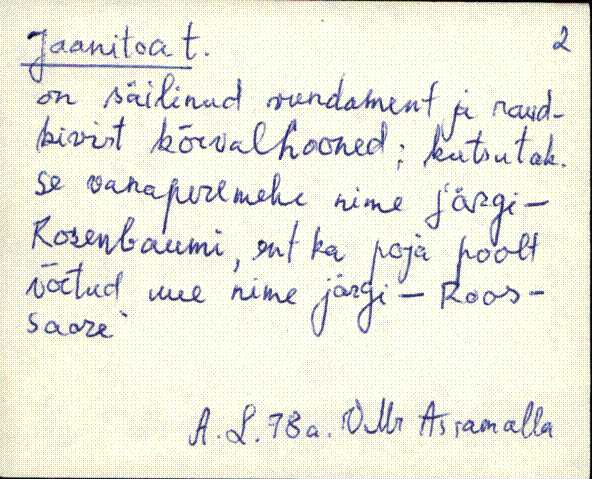 Jaanitoa t. 2
on säilinud vundament ja raud-
kivist kõrvalhooned; kutsutak-
se vanaperemehe nime järgi -
Rosenbaumi, ent ka poja poolt
võetud uue nime järgi - Roos-
saare
A. L. 78a. VMr Assamalla